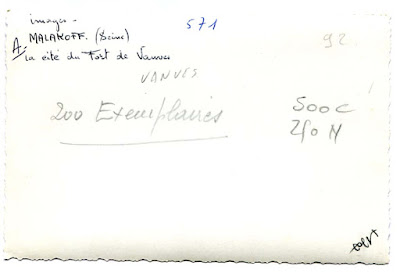 images - 571
A. MALAKOFF. (Seine) 92
la cité du Fort de Vanves
VANVES
200 Exemplaires
500 C
250 N